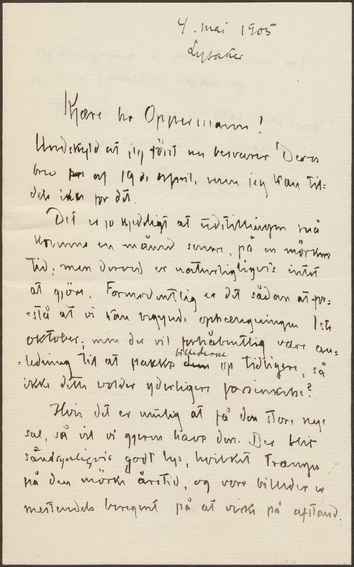 4. mai 1905
Lysaker
Kjære hr Oppermann!
Undskyld at jeg først nu besvarer Deres
brev af 19de april, men jeg kan tid-
ikke for det.
Det er jo kjedeligt at udstillingen må
komme en måned senere, på en mörkere
tid, men derved er naturligvis intet
at gjöre. Formodentlig er det sådan at for-
stå at vi kan begynde ophængningen 1ste
oktober, men der vil forhåbentlig være an-
ledning til at pakke billederne op tidligere, så
ikke dette volder yderligere forsinkelse?
Hvis det er mulig at få den store nye
sal, så vil vi gjerne have den. Der blir
sandsynligvis godt lys, hvilket trænges
på den mörke årstid, og vore billeder er
mestendels beregnet på at virke på afstand.